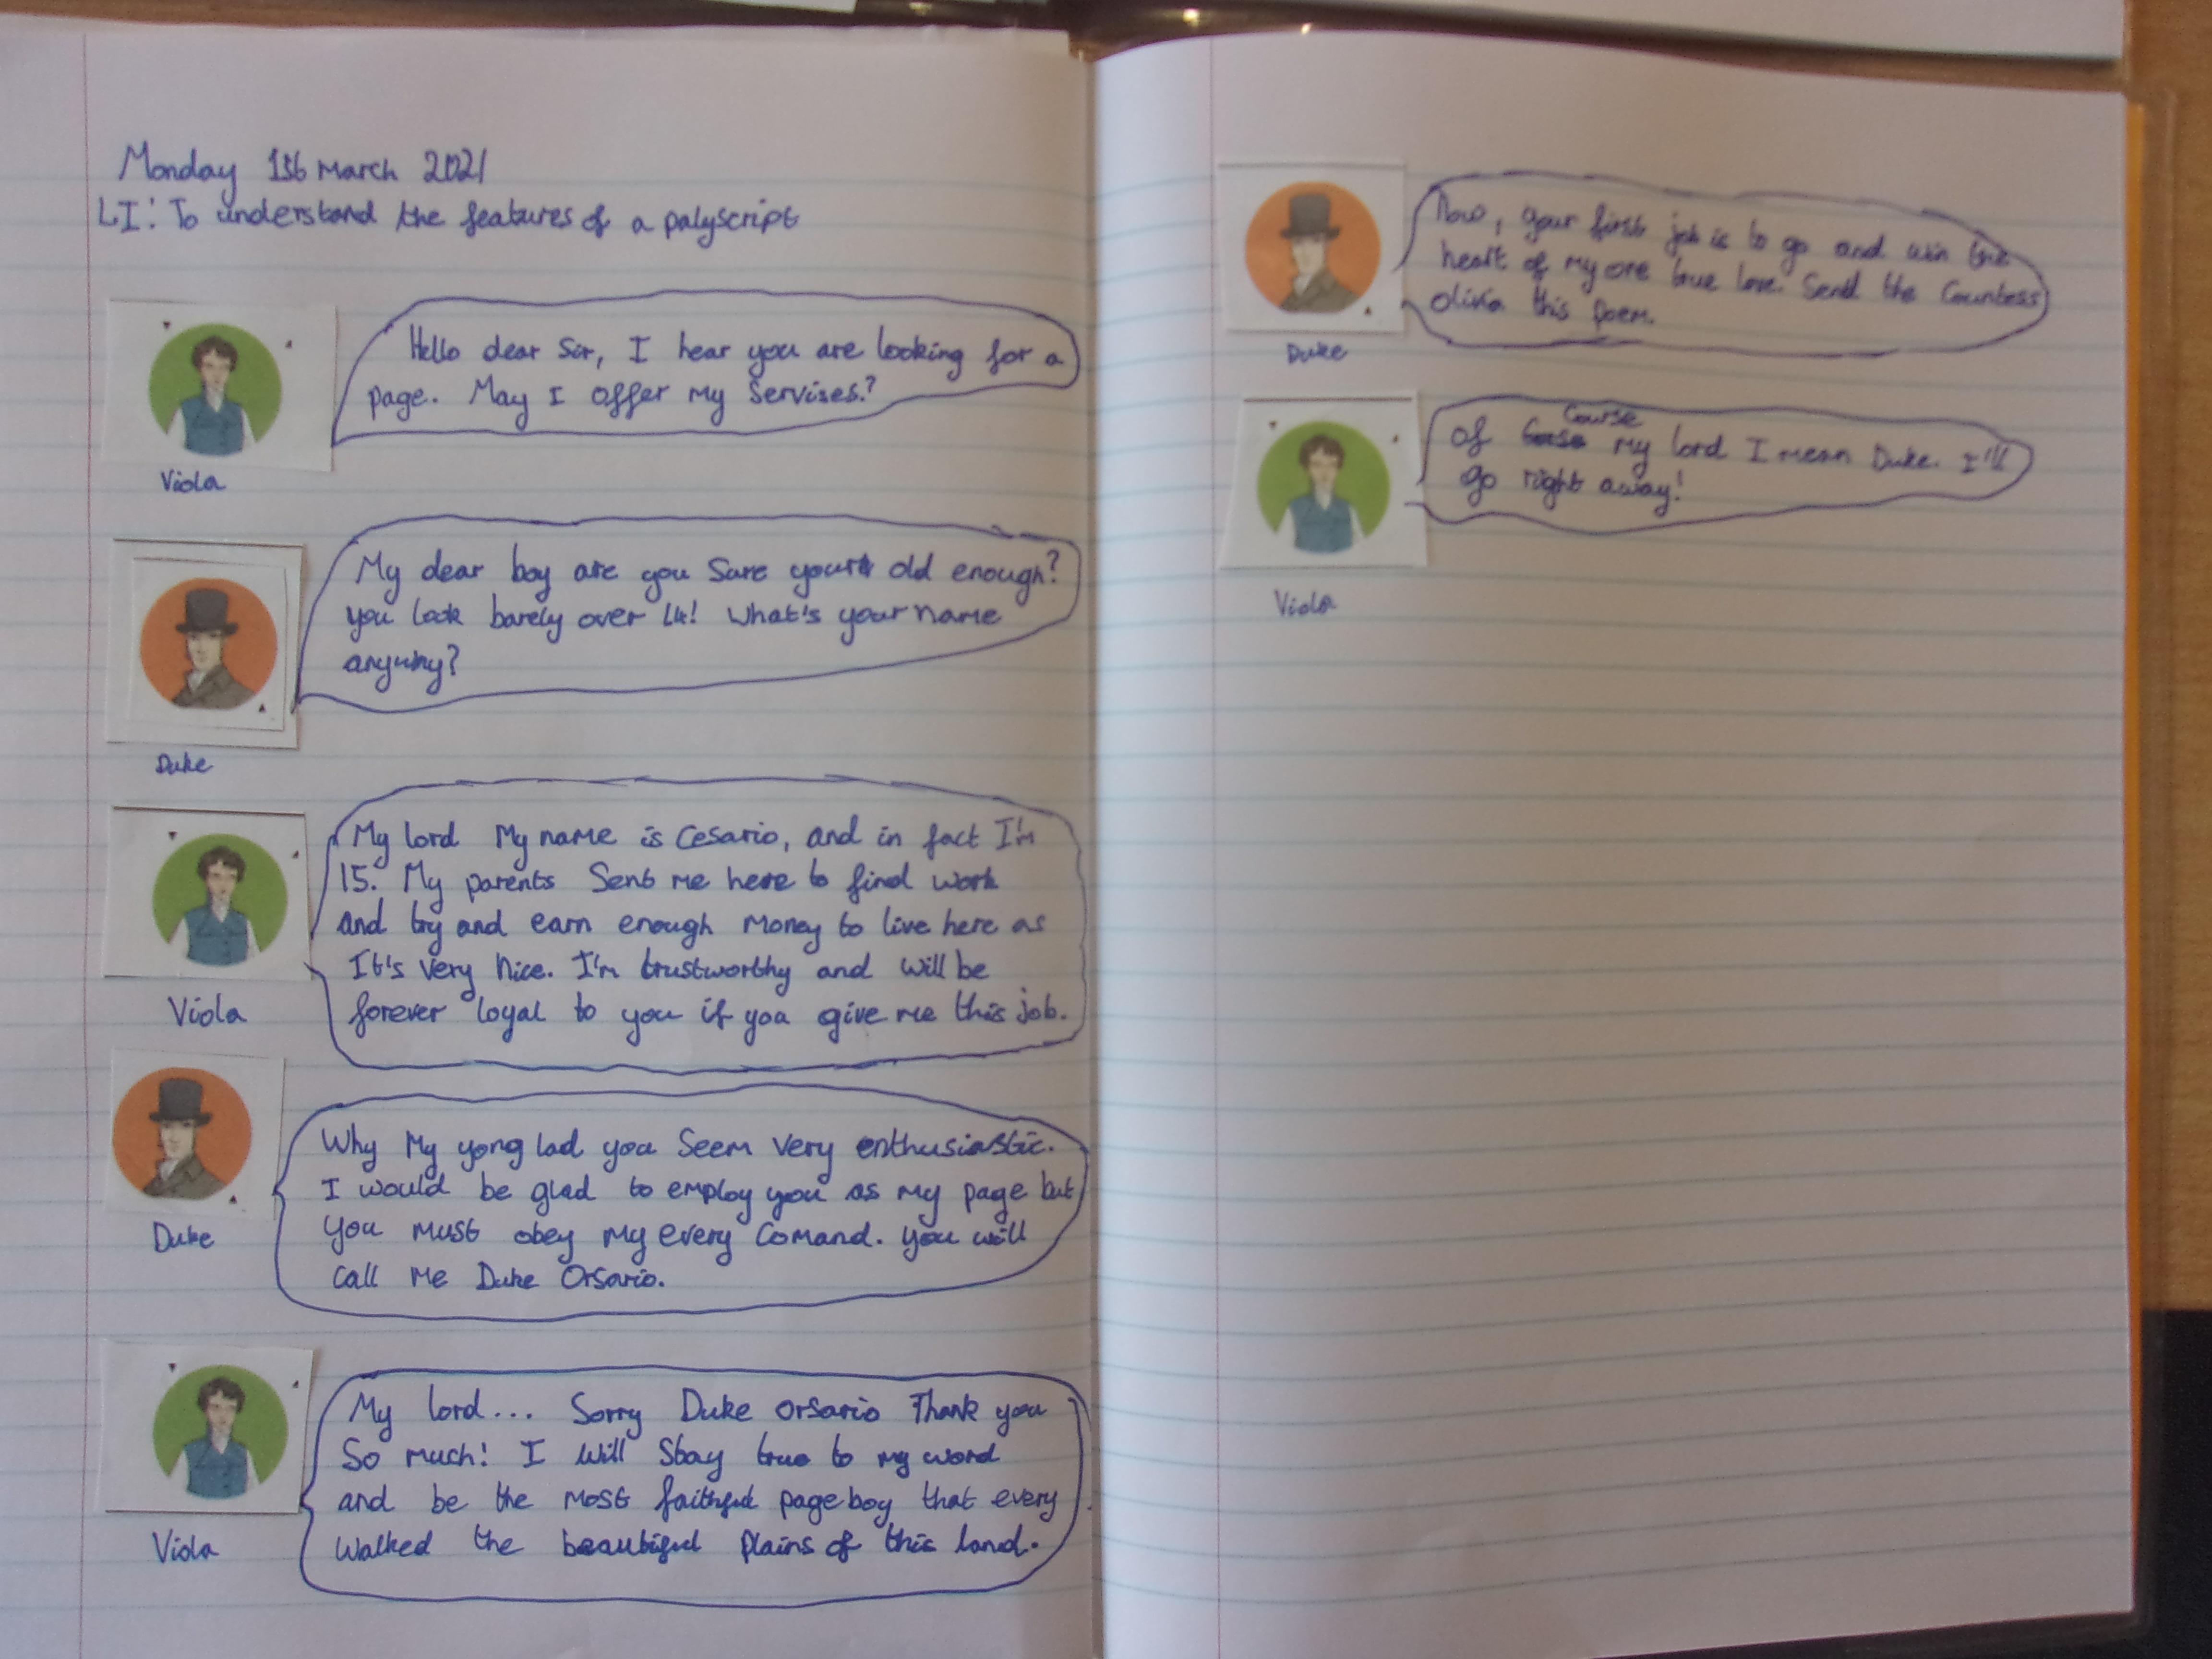 Monday 1st March 2021
LI: To understand the features of a palyscript
Hello dear Sir, I hear you are looking for a
page. May I offer my Servises?
Viola
My dear boy are you Sure your old enough?
you look barely over 14! What's your name
anyway?
Duke
My lord My name is Cesario, and in fact I'm
15. My parents Sent me here to find work
and try and earn enough money to live here as
It's very nice. I'm trustworthy and will be
forever loyal to you if you give me this job.
Viola
Why My yong lad you Seem very enthusiastic.
I would be glad to employ you as my page but
you must obey my every Comand. you will
call me Duke Orsario.
Duke
My lord... Sorry Duke Orsario Thank you
So much! I will Stay true to my word
and be the most faithful page boy that every
walked the beautiful plains of this land.
Viola
Now, your first job is to go and win the
heart of my one true love. Send the Countess
olivia this poem.
Duke
Of Course my lord I mean Duke. I'll
go right away!
Viola